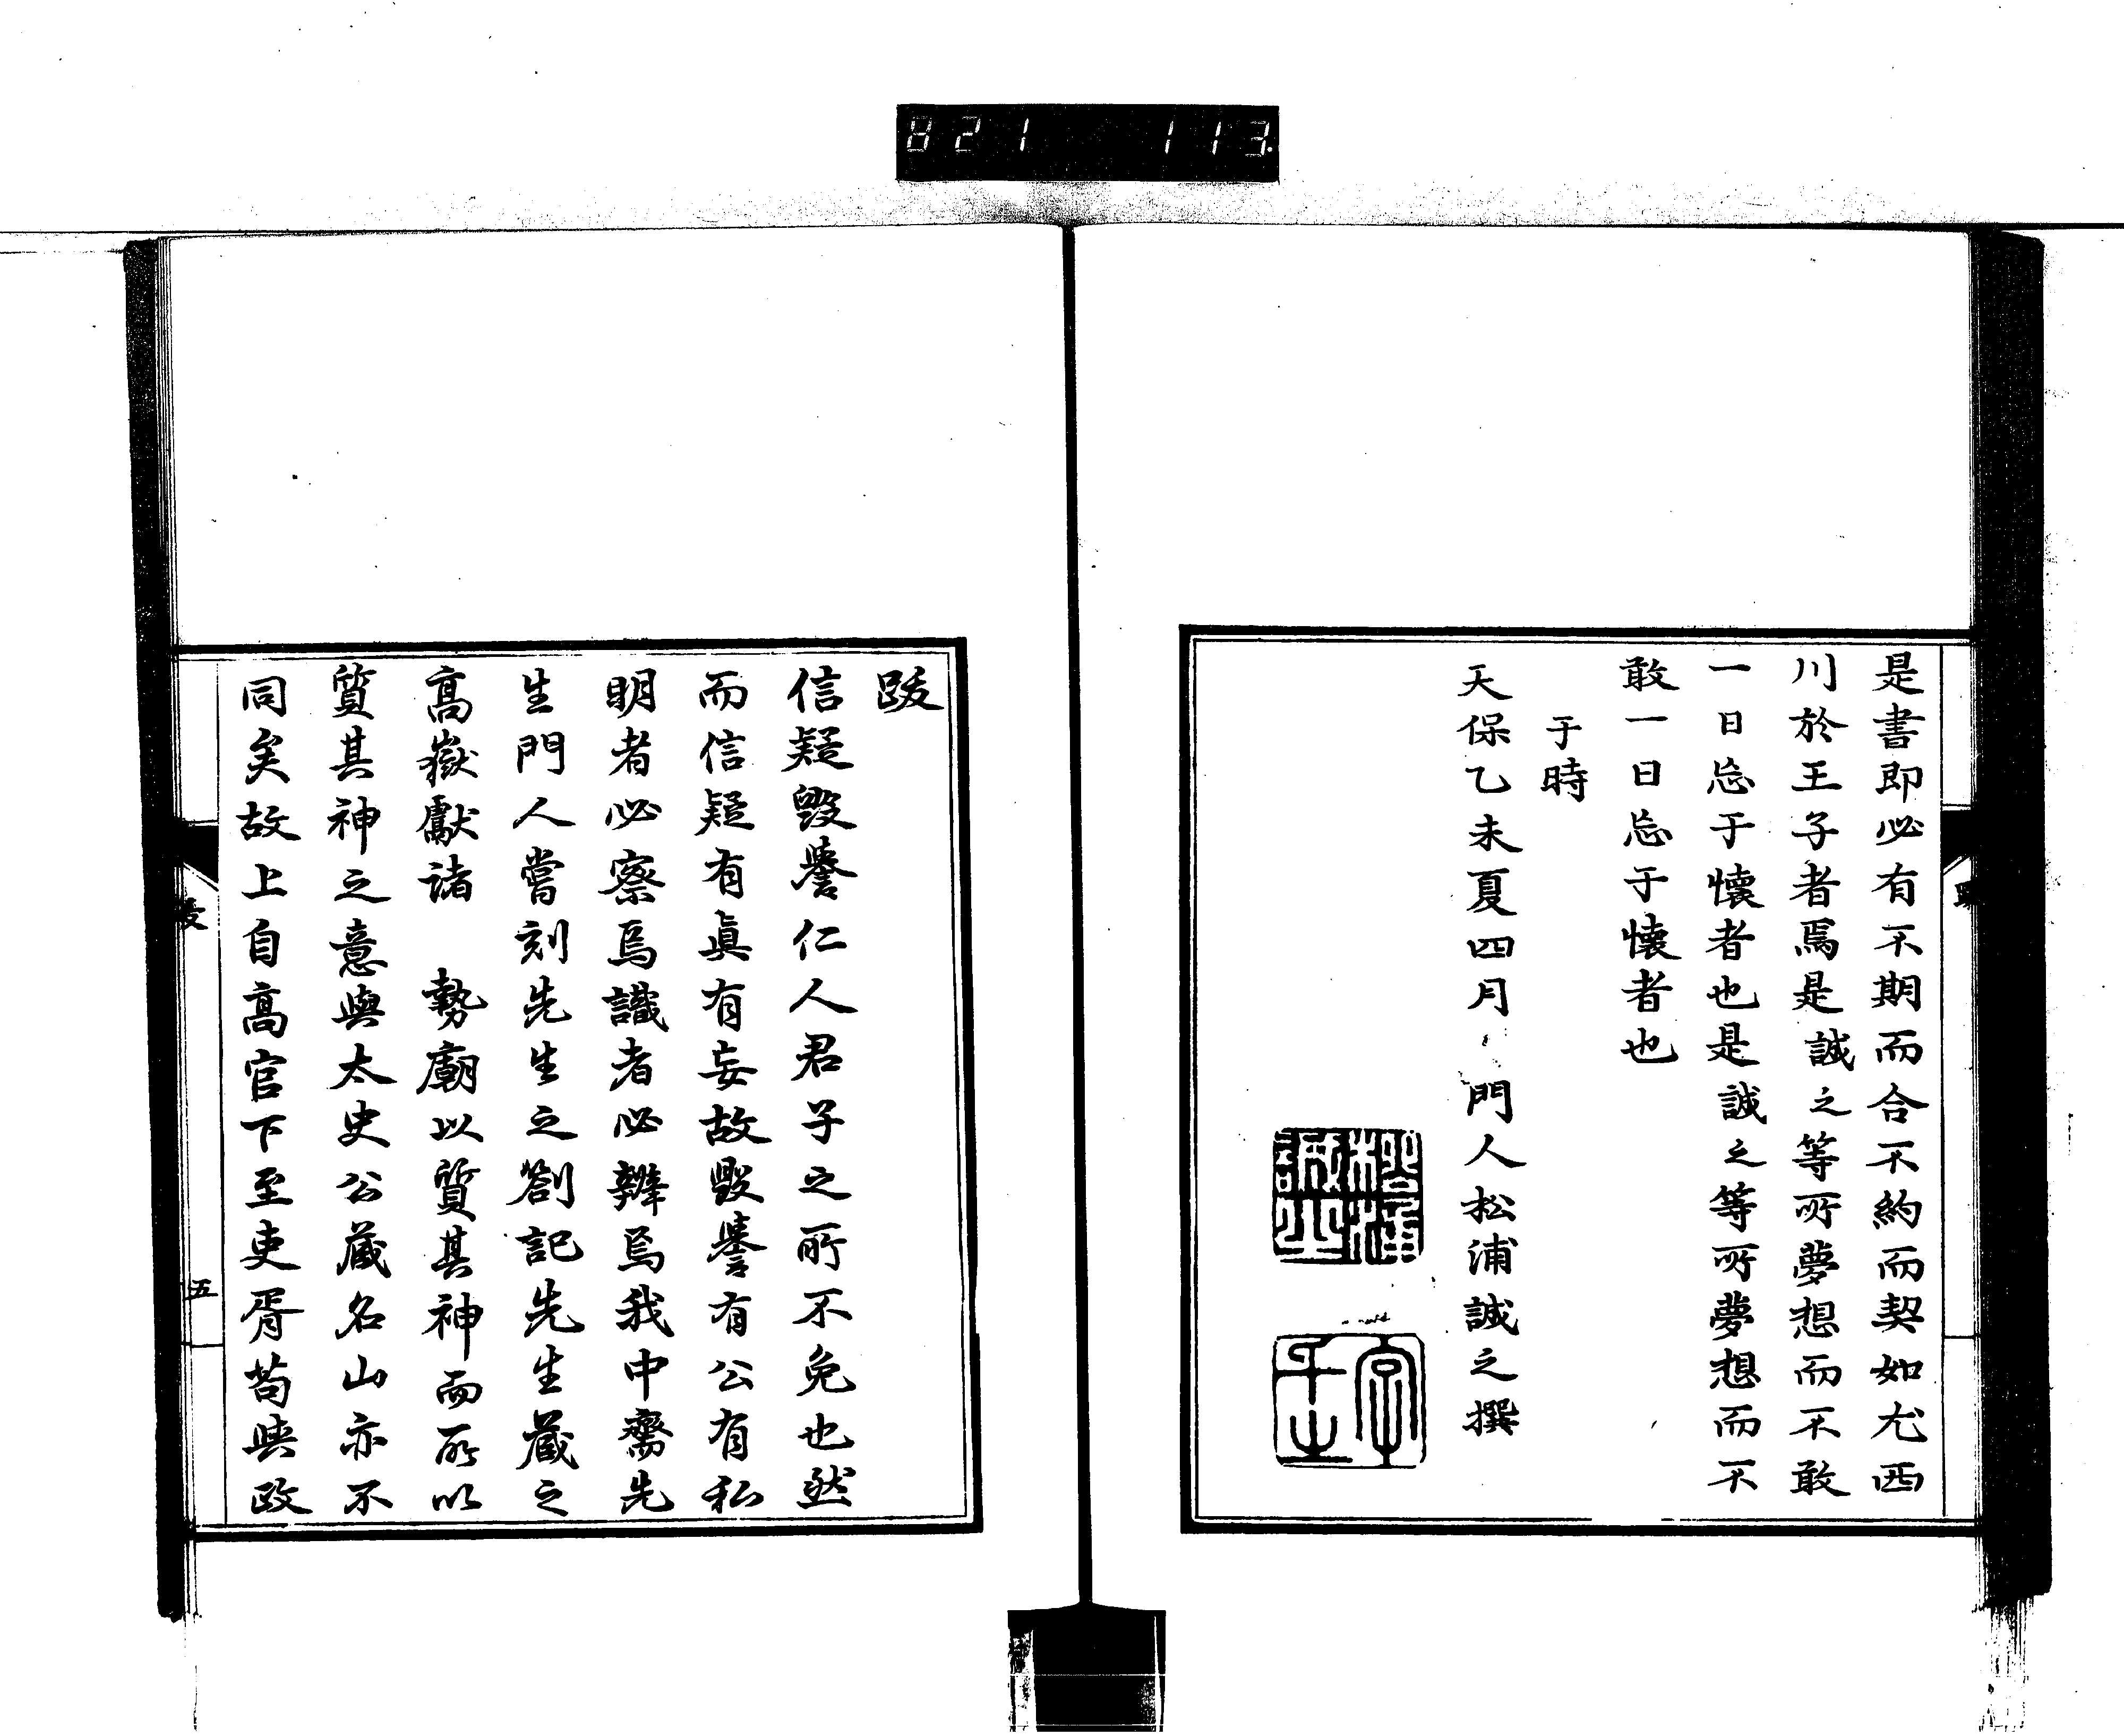 821 113
是書即必有不期而合不約而契如尤西
川於王子者焉是誠之等所夢想而不敢
一日忘于懷者也是誠之等所夢想而不
敢一日忘于懷者也
于時
天保乙未夏四月 門人松浦誠之撰
跋
信疑毀譽仁人君子之所不免也然
而信疑有眞有妄故毀譽有公有私
明者必察焉識者必辨焉我中齋先
生門人嘗刻先生之劄記先生藏之
高嶽獻諸 勢廟以質其神而所以
質其神之意與太史公藏名山亦不
同矣故上自高官下至吏胥苟與政
五